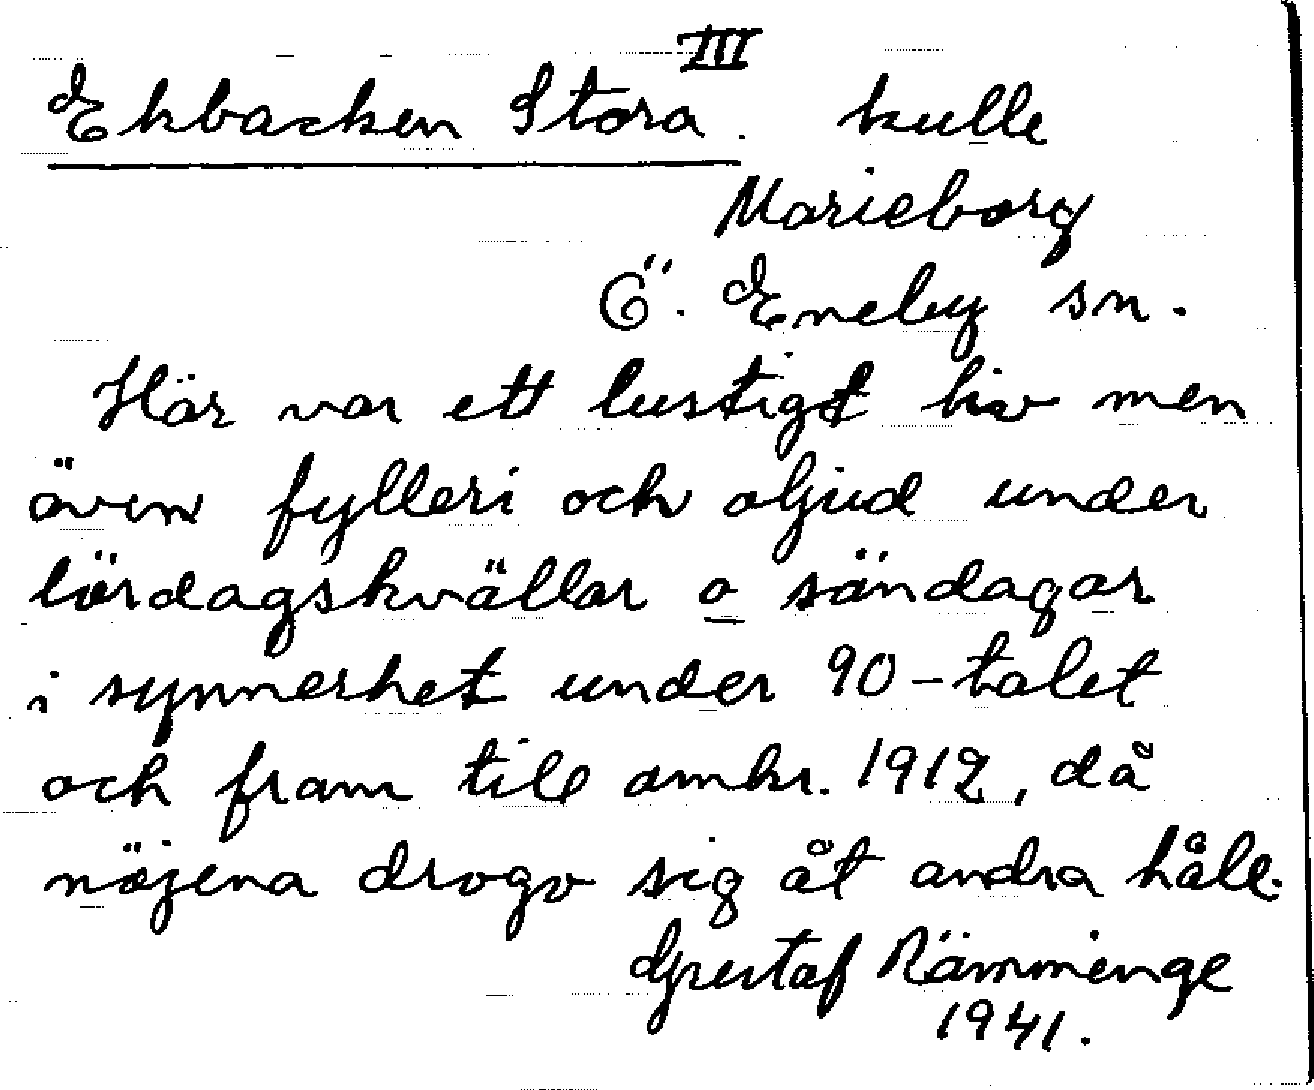 III
Ekbacken Stora. kulle
Marieborg
Ö. Eneby sn.
Här var ett lustigt liv men
även fylleri och oljud under
lördagskvällar o söndagar
i synnerhet under 90-talet
och fram till omkr. 1912, då
nöjena drogo sig åt andra håll.
Gustaf Rämmenge
1941.